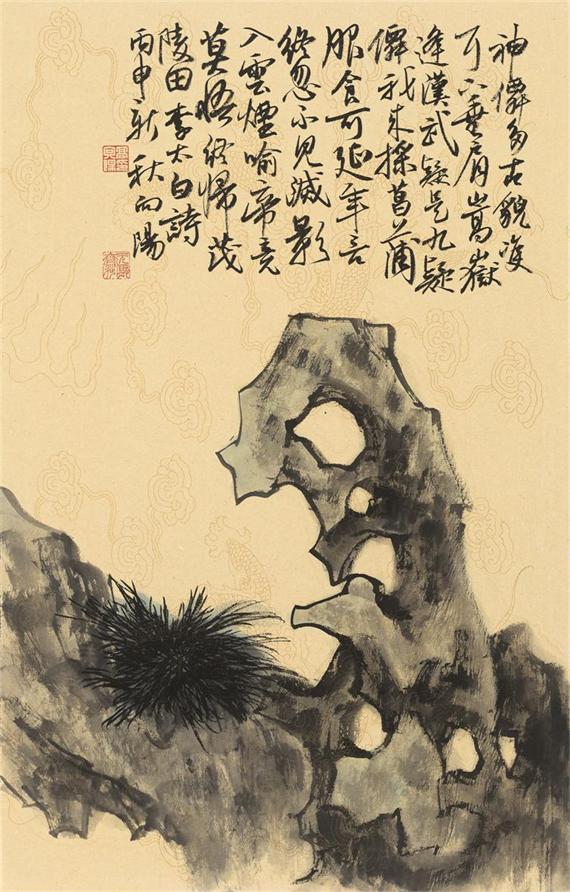 神僊多古貌雙
耳下垂肩嵩嶽
逢漢武疑是九疑
僊我来採菖蒲
服食可延年言
終忽不見滅影
入雲煙喻帝竟
莫悟終歸茂
陵田李太白詩
丙申新秋向陽